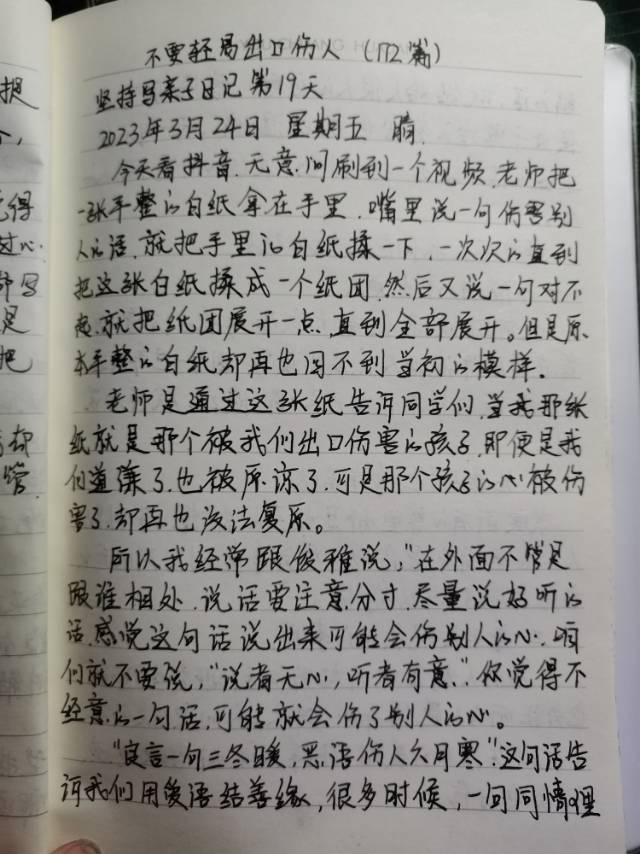 提
得
过心
写
是
把
却
管
不要轻易出口伤人（172篇）
坚持写亲子日记第19天
2023年3月24日 星期五 晴
今天看抖音，无意间刷到一个视频，老师把
一张平整的白纸拿在手里，嘴里说一句伤害别
人的话，就把手里的白纸揉一下，一次次的直到
把这张白纸揉成一个纸团，然后又说一句对不
起，就把纸团展开一点，直到全部展开。但是原
本平整的白纸，却再也回不到当初的模样。
老师是通过这张纸告诉同学们，当我那张
纸就是那个被我们出口伤害的孩子，即便是我
们道歉了，也被原谅了，可是那个孩子的心被伤
害了，却再也没法复原。
所以我经常跟俊雅说，"在外面不管是
跟谁相处，说话要注意分寸，尽量说好听的
话，感觉这句话说出来可能会伤别人的心，咱
们就不要说，"说者无心，听者有意"。你觉得不
经意的一句话，可能就会伤了别人的心。
"良言一句三冬暖，恶语伤人六月寒"，这句话告
诉我们用爱语结善缘，很多时候，一句同情理